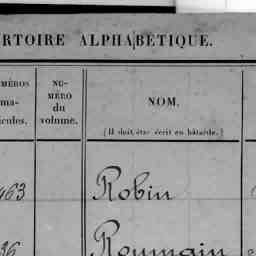 RTOIRE ALPHABÉTIQUE.
MÉROS
ma-
icules.
NU-
MÉRO
du
volume.
NOM.
(Il doit être écrit en bâtarde.)
463
Robin
36
Roumain